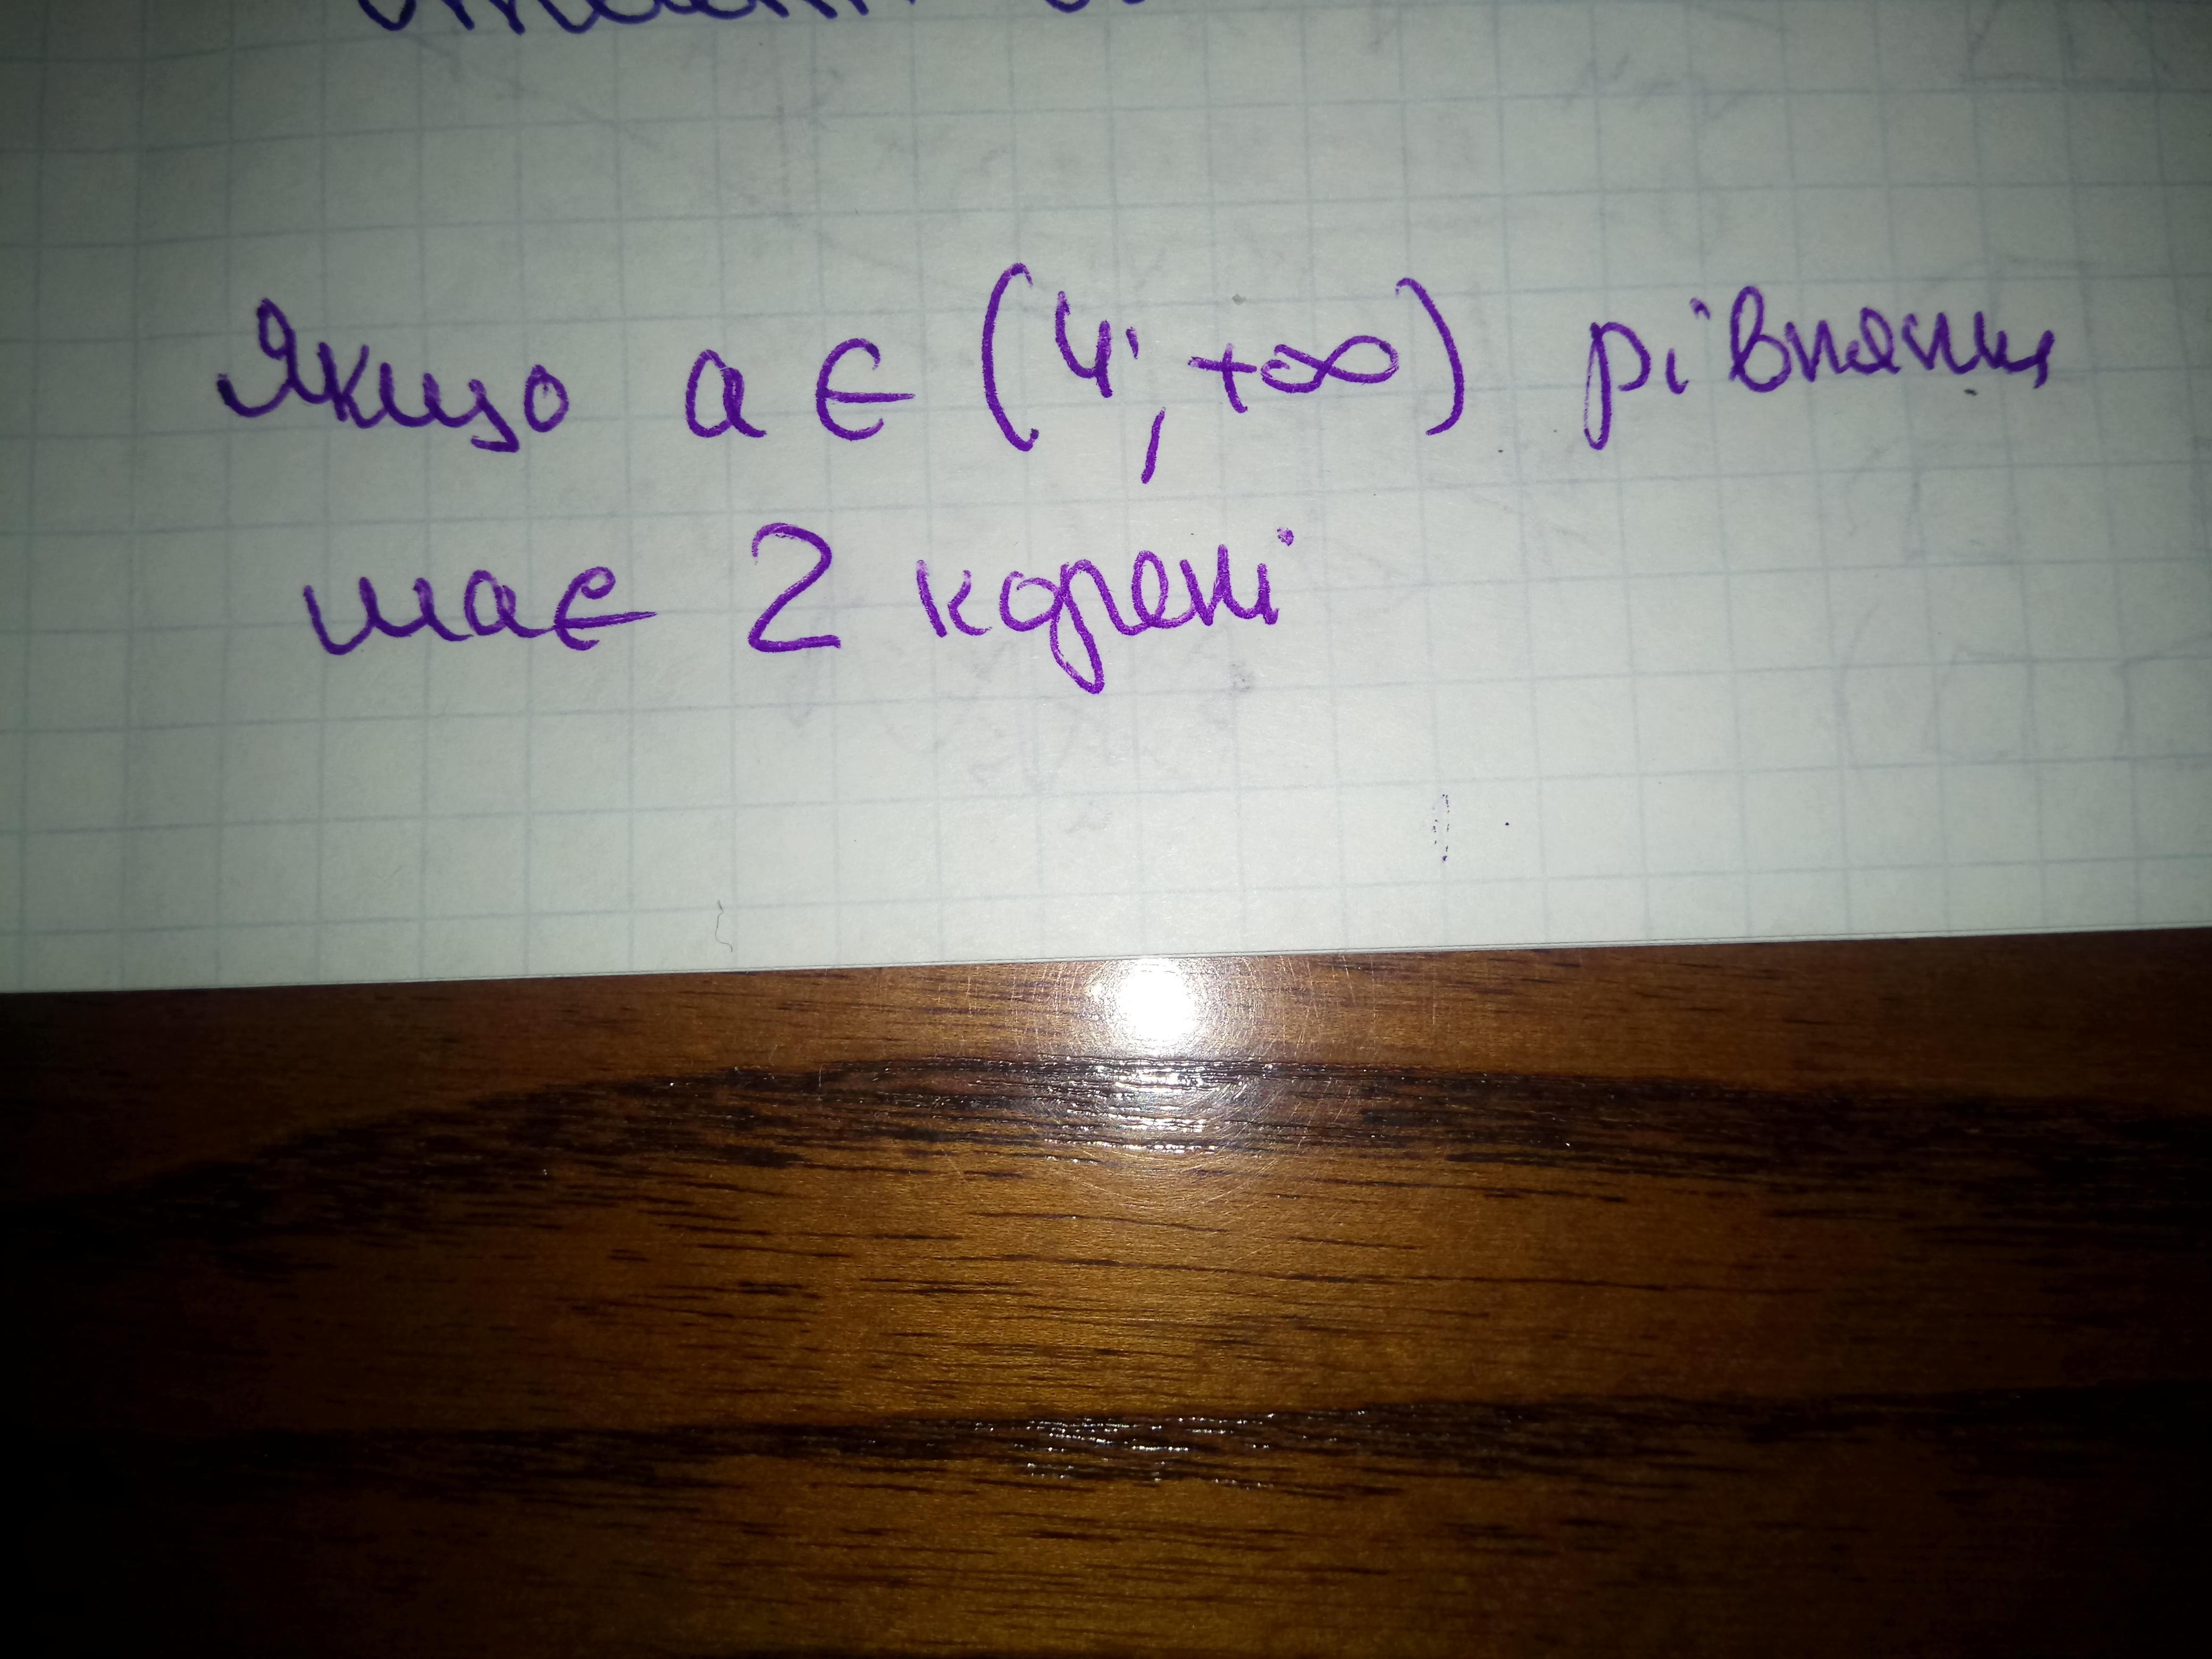 Якщо a ∈ (4; +∞) рівняння
має 2 корені